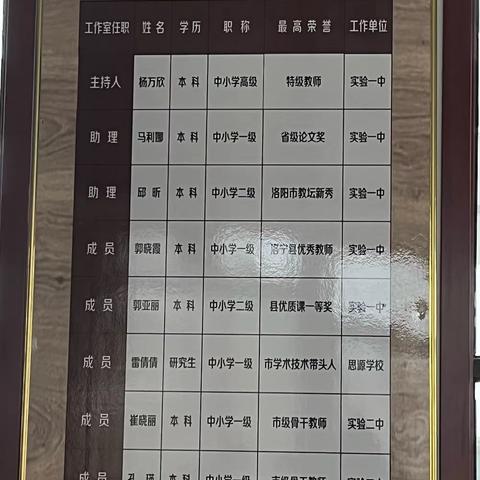 工作室任职 姓名 学历 职称 最高荣誉 工作单位
主持人 杨万欣 本科 中小学高级 特级教师 实验一中
助理 马利娜 本科 中小学一级 省级论文奖 实验一中
助理 邱昕 本科 中小学二级 洛阳市教坛新秀 实验一中
成员 郭晓霞 本科 中小学一级 洛宁县优秀教师 实验一中
成员 郭亚丽 本科 中小学二级 县优质课一等奖 实验一中
成员 雷倩倩 研究生 中小学一级 市学术技术带头人 思源学校
成员 崔晓丽 本科 中小学一级 市级骨干教师 实验二中
成员 孔瑛 本科 中小学一级 市级骨干教师